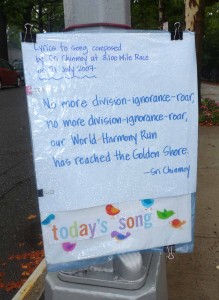 Lyrics to song composed
by Sri Chinmoy at 3100 Mile Race
on 31 July 2007
No more division-ignorance-roar,
no more division-ignorance-roar,
our World Harmony Run
has reached the Golden Shore.
—Sri Chinmoy
today's song